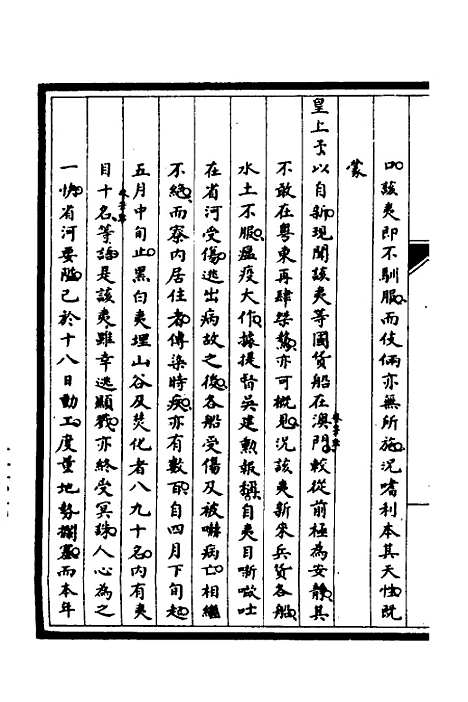 口該夷即不馴服而伎倆亦無所施況嗜利本其天性既
蒙
皇上予以自新現聞該夷等國貨船在澳門較從前極為安靜其
不敢在粵東再肆桀驁亦可概見況該夷新來兵貨各船
水土不服瘟疫大作據提督吳建勳報稱自夷目嘶啵吐
在省河受傷逃出病故之後各船受傷及被嚇病亡相繼
不絕而寮內居住者傳染時疾亦有數百自四月下旬起
五月中旬止黑白夷埋山谷及焚化者八九十名內有夷
目十名等語是該夷雖幸逃顯戮亦終受冥殊人心為之
一快省河要隘已於十八日動工度量地勢攔塞而本年